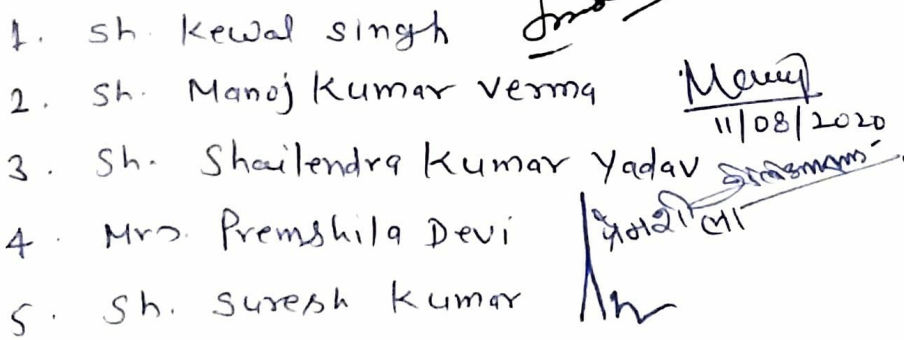 1. Sh. Kewal Singh
2. Sh. Manoj Kumar Verma Manoj
11/08/2020
3. Sh. Shailendra Kumar Yadav
4. Mrs. Premshila Devi प्रेमशीला
5. Sh. Suresh Kumar